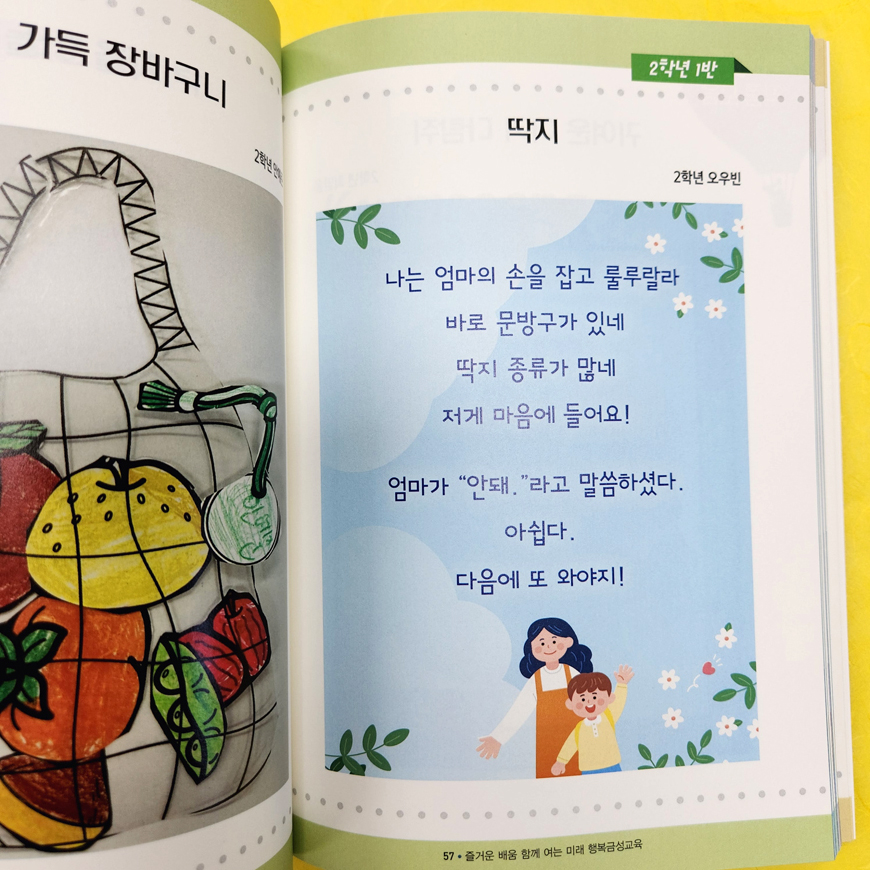 가득 장바구니
2학년
2학년 1반
딱지
2학년 오우빈
나는 엄마의 손을 잡고 룰루랄라
바로 문방구가 있네
딱지 종류가 많네
저게 마음에 들어요!
엄마가 “안돼.”라고 말씀하셨다.
아쉽다.
다음에 또 와야지!
57 • 즐거운 배움 함께 여는 미래 행복금성교육